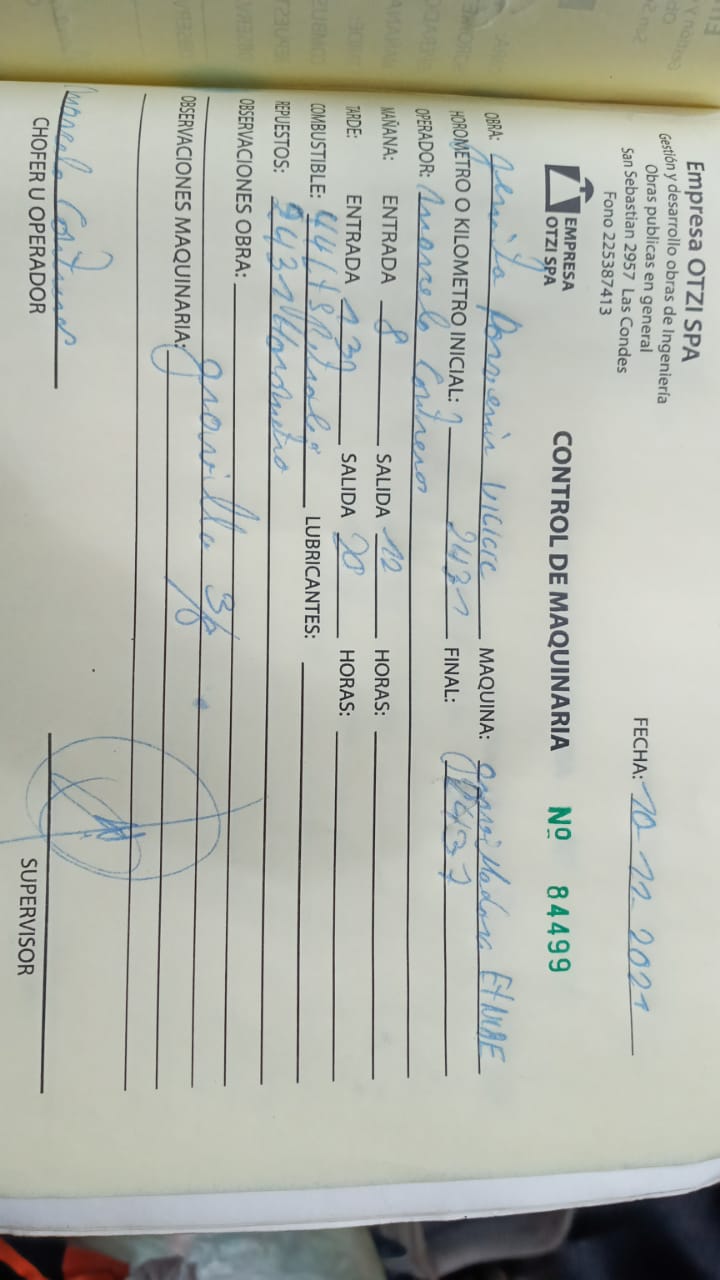 Empresa OTZI SPA
Gestión y desarrollo obras de Ingeniería
Obras publicas en general
San Sebastian 2957 Las Condes
Fono 225387413
FECHA: 10-11-2021
EMPRESA
OTZI SPA
CONTROL DE MAQUINARIA Nº 84499
OBRA: Porvenir MAQUINA: gravilladora
HOROMETRO O KILOMETRO INICIAL: 2431 FINAL: 2437
OPERADOR: Marcelo Contreras
MAÑANA: ENTRADA 8 SALIDA 12 HORAS:
TARDE: ENTRADA 13 SALIDA 20 HORAS:
COMBUSTIBLE: 44 Lts Petroleo LUBRICANTES:
REPUESTOS: 2431 Horometro
OBSERVACIONES OBRA:
gravilla 3/8
OBSERVACIONES MAQUINARIA:
Marcelo Contreras
CHOFER U OPERADOR
SUPERVISOR